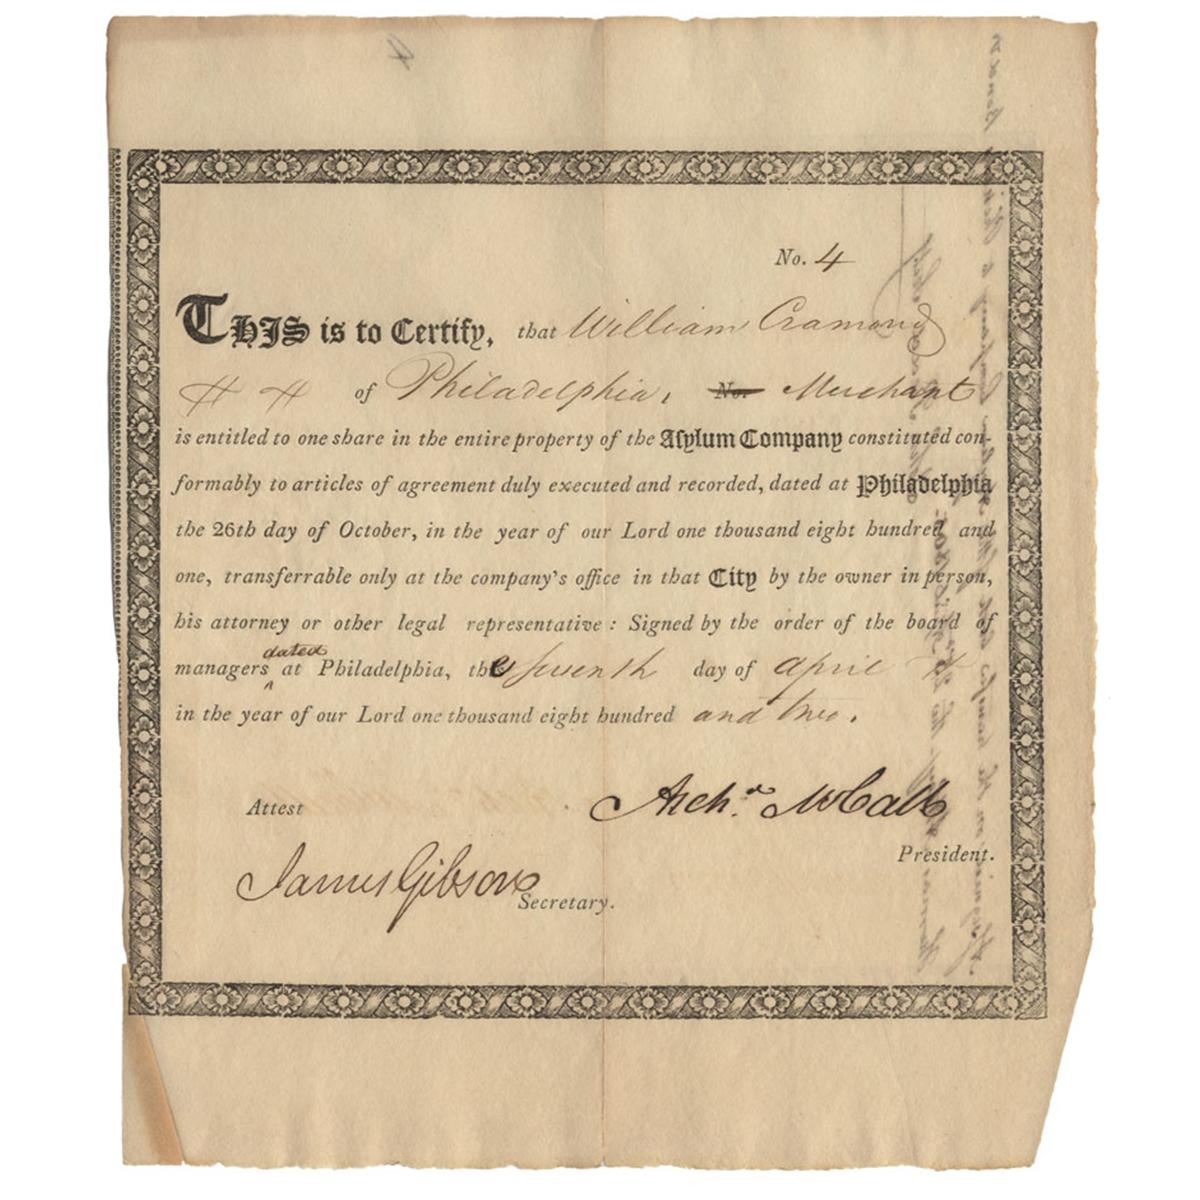 4
No. 4
THIS is to Certify, that William Cramond
of Philadelphia, No. Merchant
is entitled to one share in the entire property of the Asylum Company constituted con-
formably to articles of agreement duly executed and recorded, dated at Philadelphia
the 26th day of October, in the year of our Lord one thousand eight hundred and
one, transferrable only at the company's office in that City by the owner in person,
his attorney or other legal representative: Signed by the order of the board of
dated
managers at Philadelphia, the seventh day of april
in the year of our Lord one thousand eight hundred and two.
Attest
Archd. McCall
President.
James Gibson
Secretary.